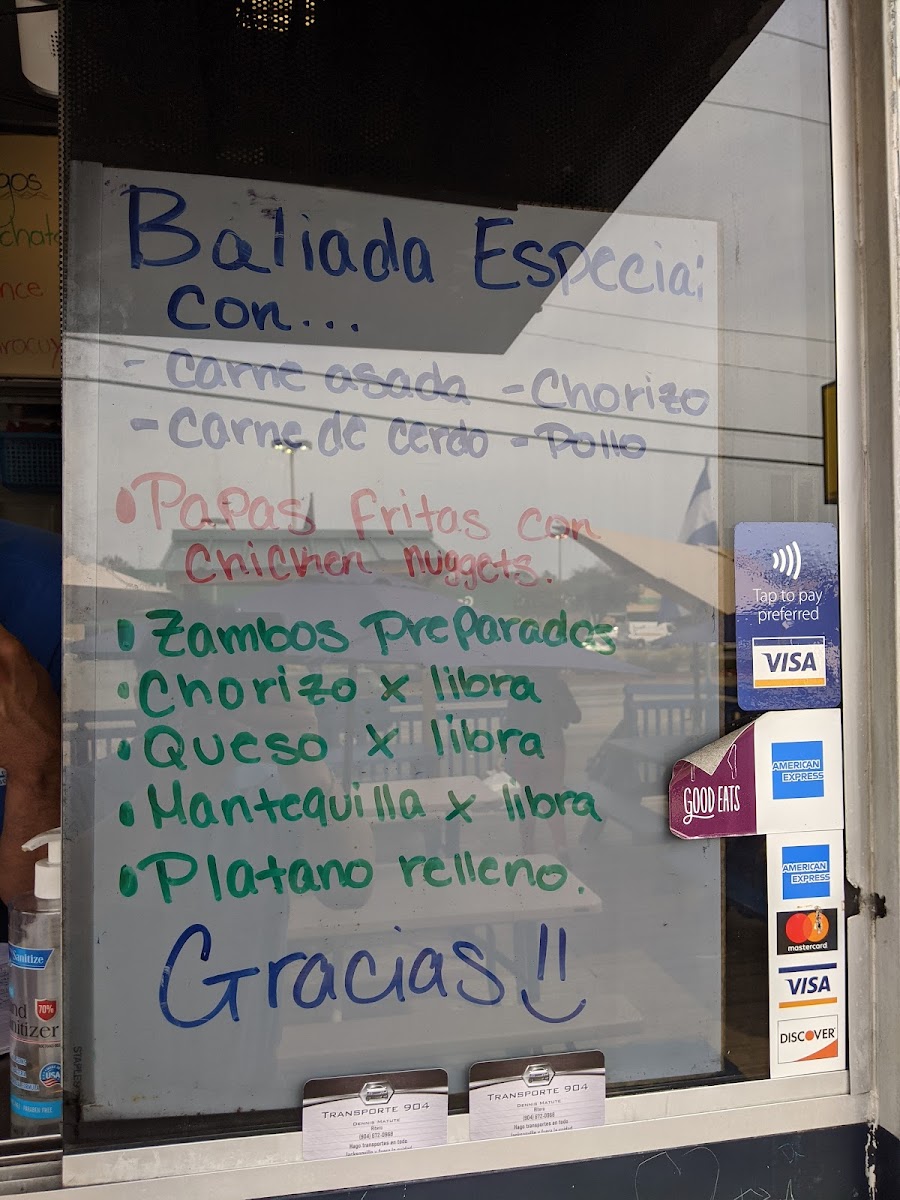 Baliada Especial
con...
- Carne asada - Chorizo
- Carne de cerdo - Pollo
• Papas fritas con
chichen nuggets.
• Zambos Preparados
• Chorizo x libra
• Queso x libra
• Mantequilla x libra
• Platano relleno.
Gracias!!
gos
nce
Tap to pay
preferred
VISA
GOOD EATS
AMERICAN
EXPRESS
AMERICAN
EXPRESS
mastercard
VISA
DISCOVER
Sanitize
70%
USA
STAPLES
TRANSPORTE 904
DENNIS MATUTE
(904) 672-0968
Hago transportes en toda
TRANSPORTE 904
DENNIS MATUTE
(904) 672-0968
Hago transportes en toda